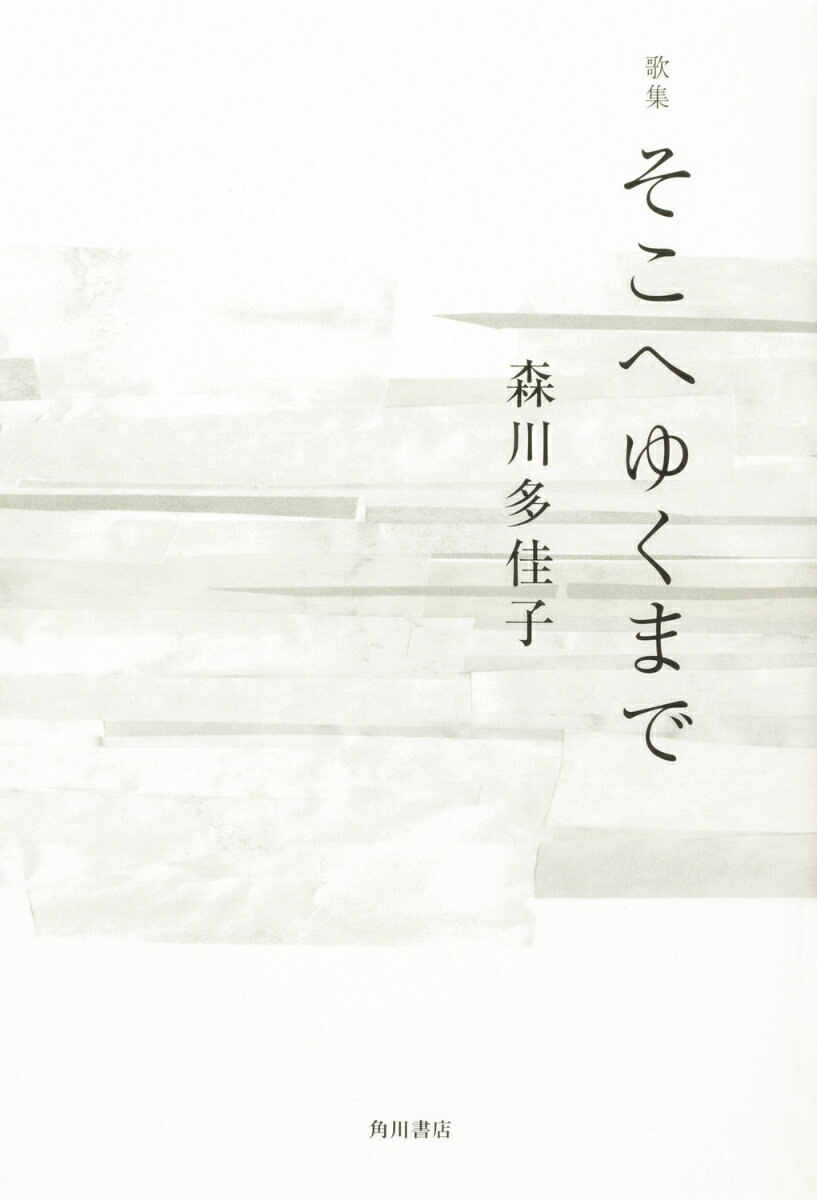 歌集
そこへゆくまで
森川多佳子
角川書店